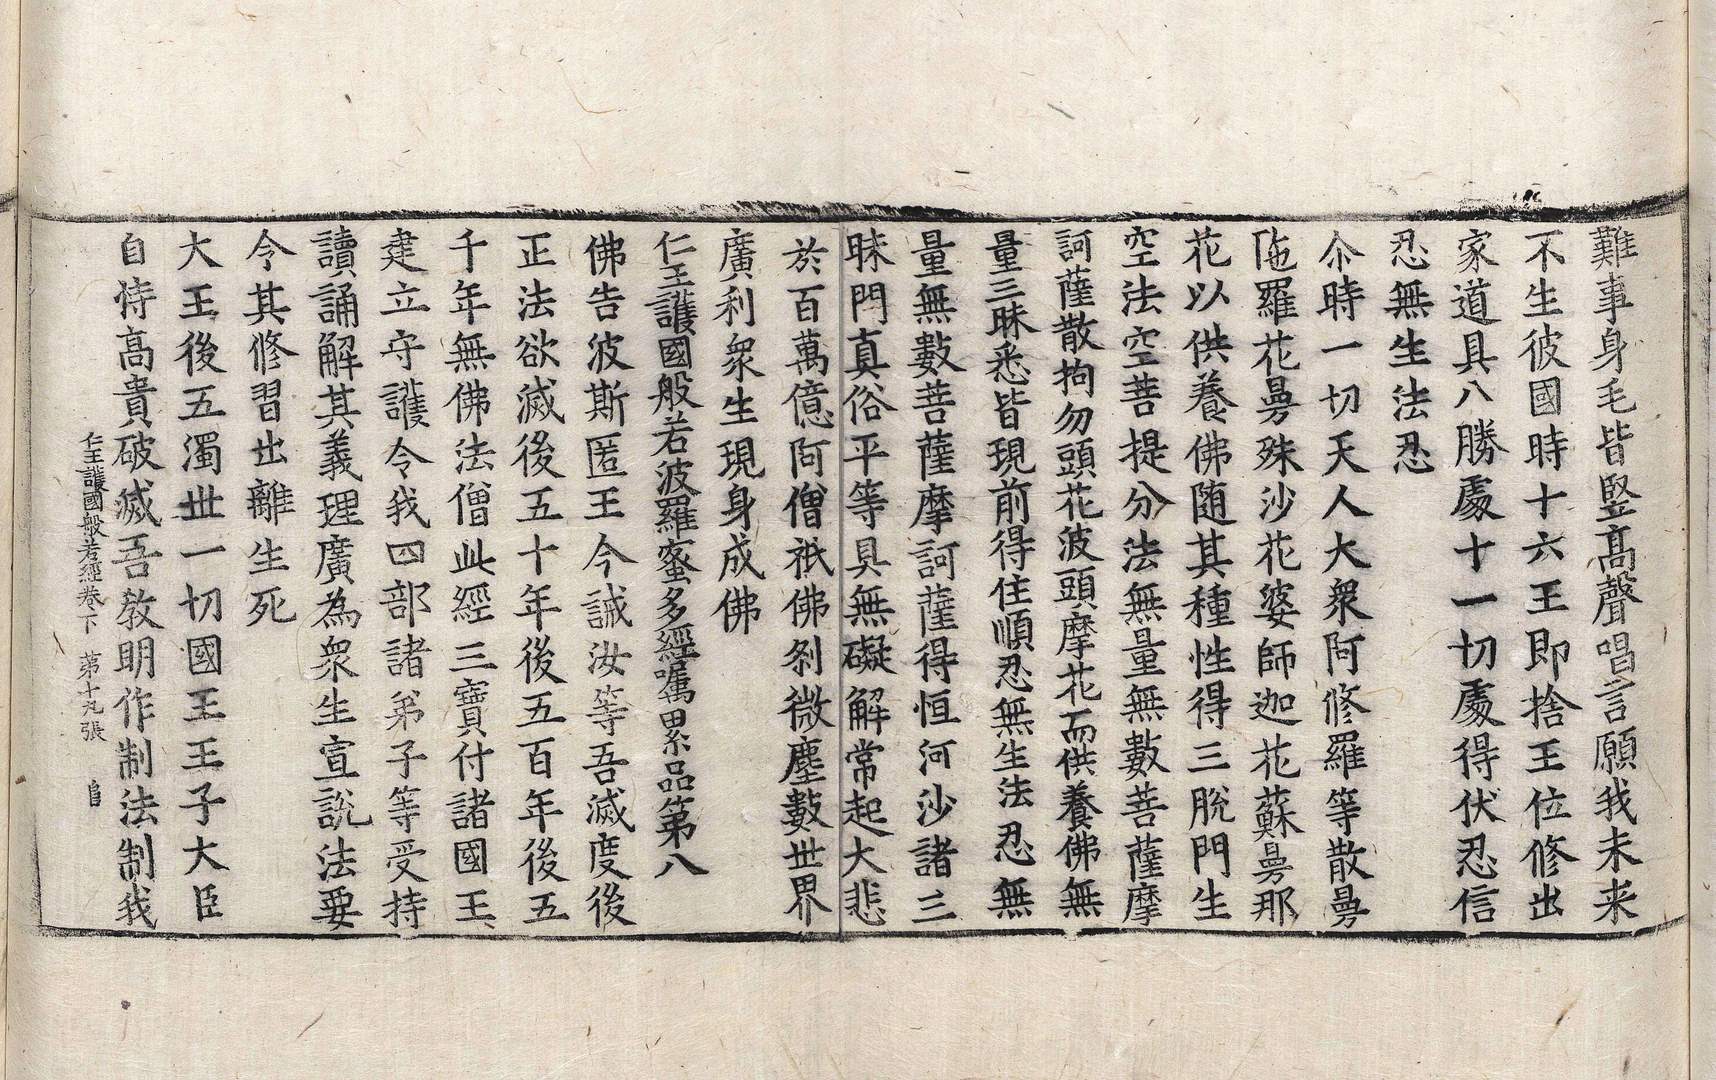 難事身毛皆竪高聲唱言願我未来
不生彼國時十六王即捨王位修出
家道具八勝處十一切處得伏忍信
忍無生法忍
尒時一切天人大衆阿修羅等散曼
陁羅花曼殊沙花婆師迦花蘇曼那
花以供養佛随其種性得三脫門生
空法空菩提分法無量無數菩薩摩
訶薩散拘勿頭花波頭摩花而供養佛無
量三昧悉皆現前得住順忍無生法忍無
量無數菩薩摩訶薩得恒河沙諸三
昧門真俗平等具無礙解常起大悲
於百萬億阿僧祇佛刹微塵數世界
廣利衆生現身成佛
仁王護國般若波羅蜜多經囑累品第八
佛告波斯匿王今誡汝等吾滅度後
正法欲滅後五十年後五百年後五
千年無佛法僧此經三寶付諸國王
建立守護令我四部諸弟子等受持
讀誦解其義理廣為衆生宣說法要
令其修習出離生死
大王後五濁世一切國王王子大臣
自恃高貴破滅吾教明作制法制我
仁王護國般若經卷下 第十九張